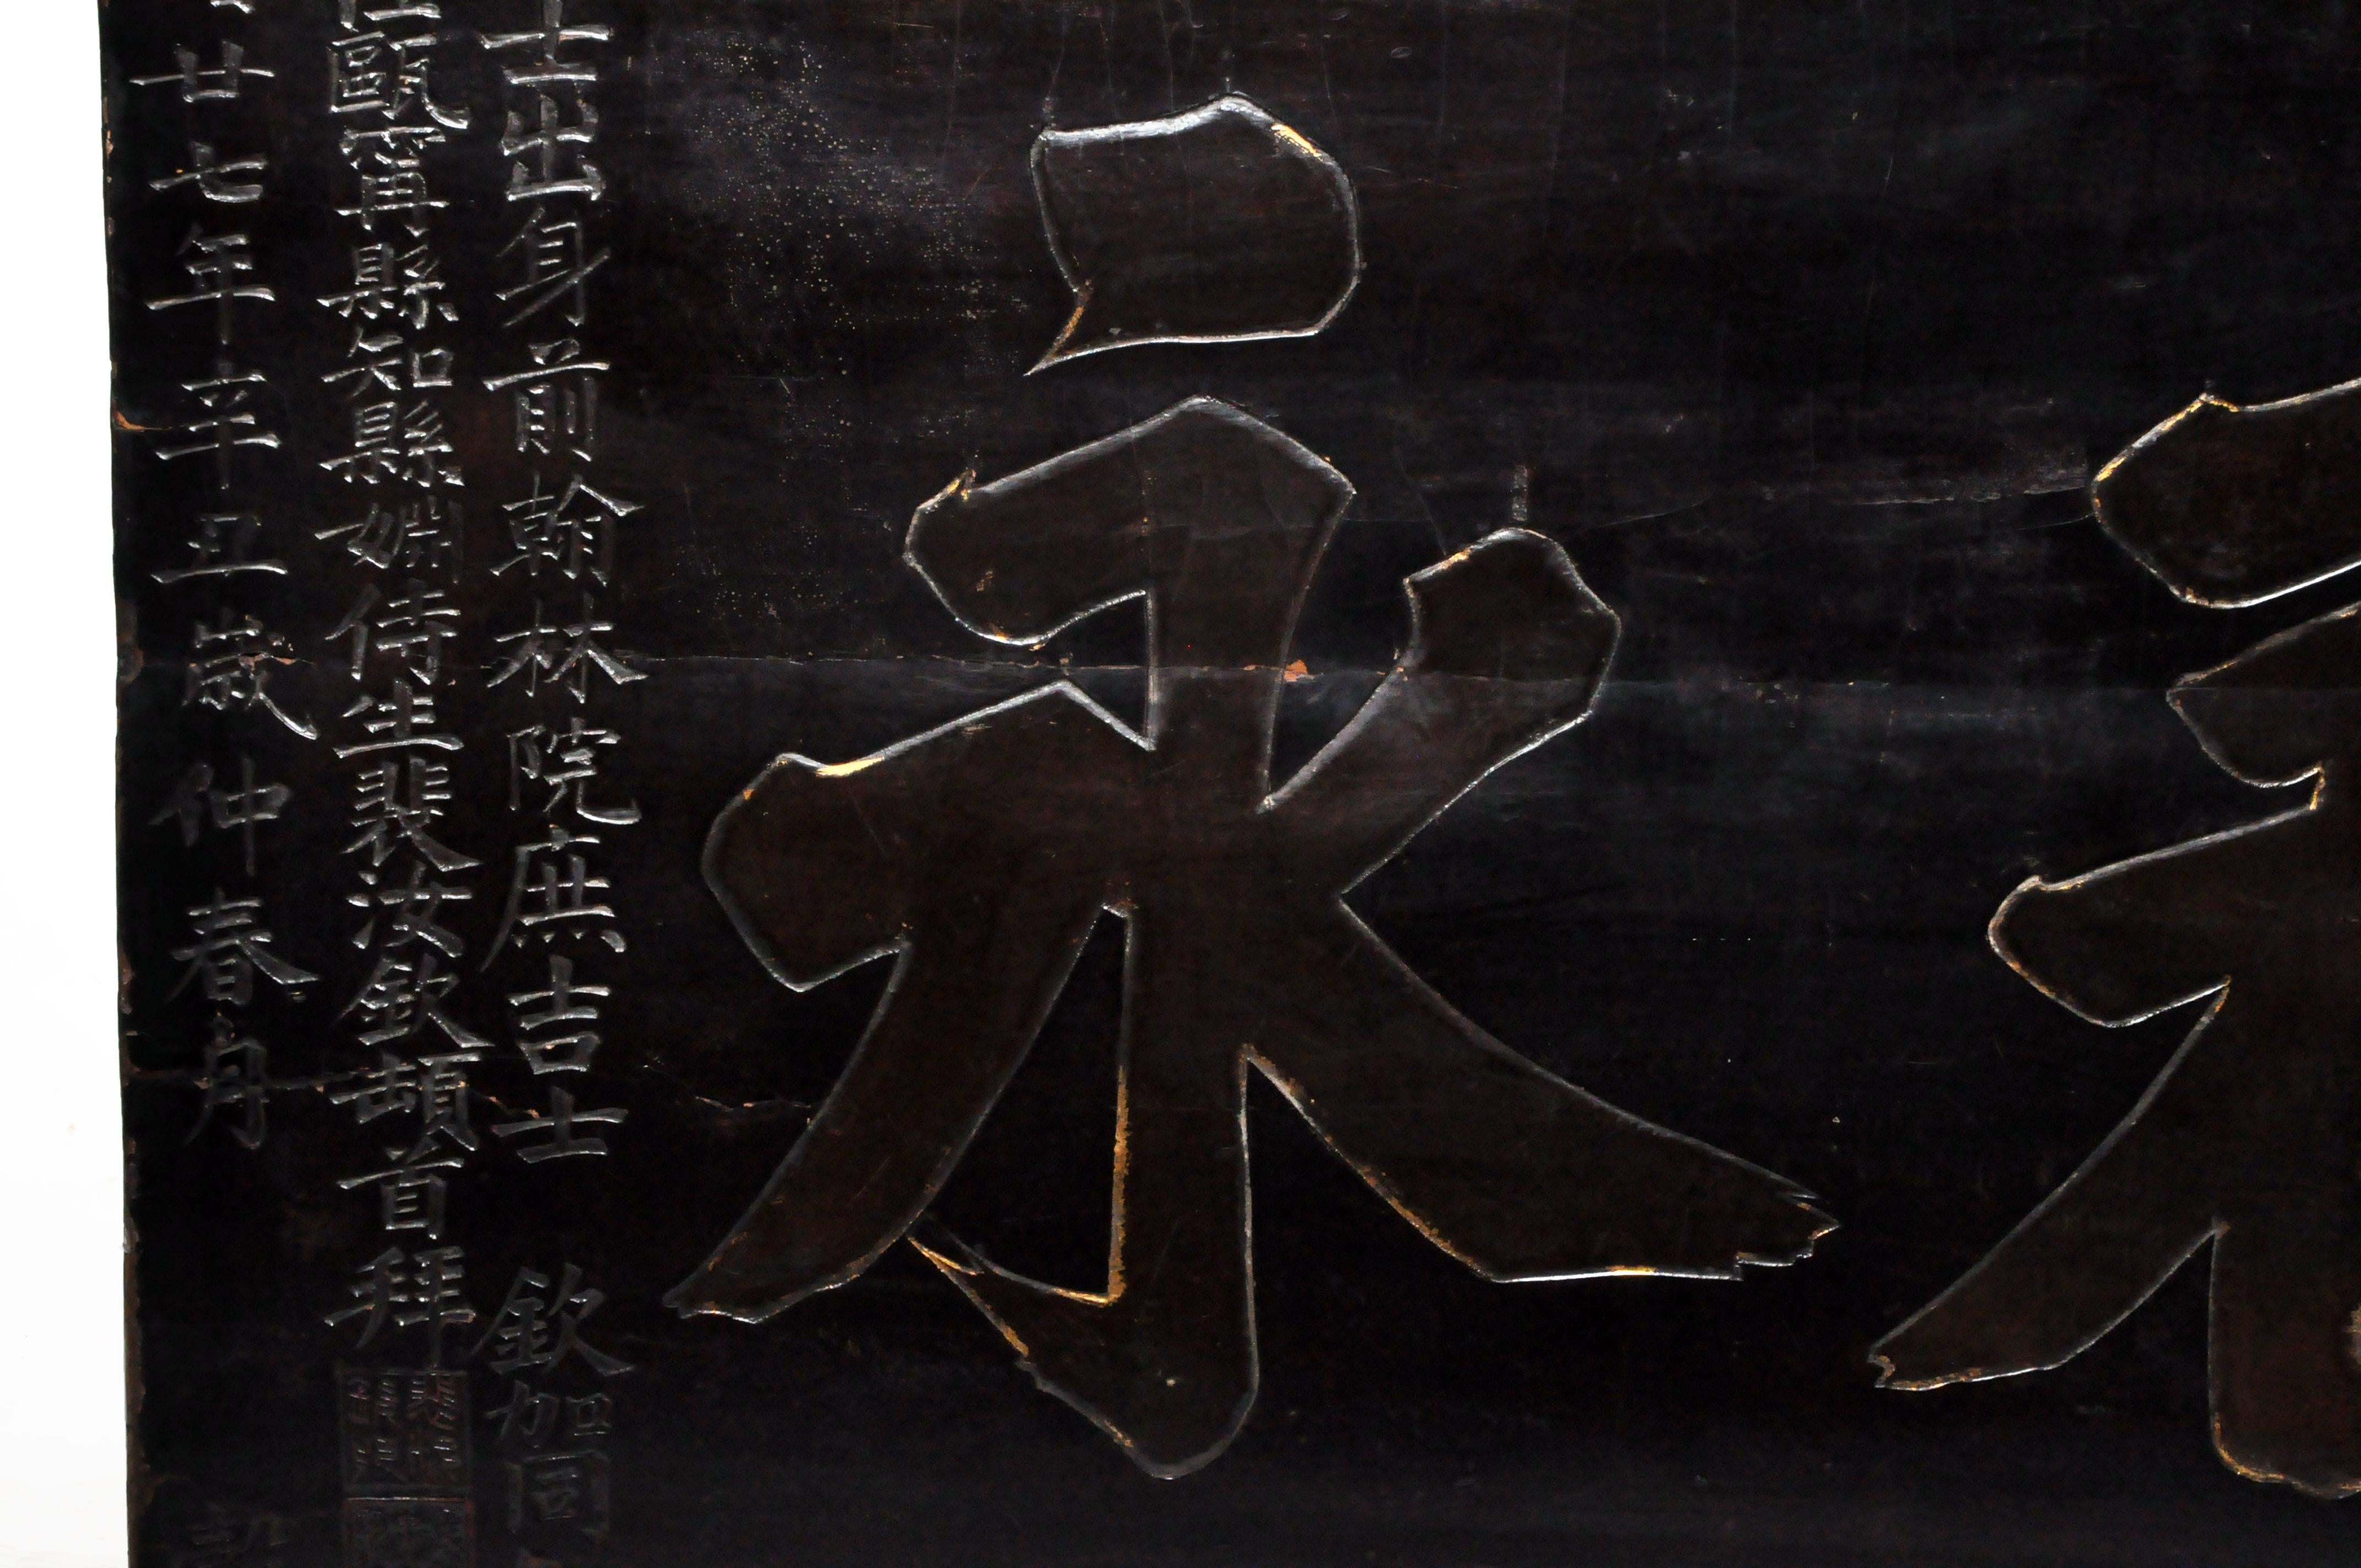 永
士出身前翰林院庶吉士 欽加同
甌甯縣知縣姻侍生裴汝欽頓首拜
廿七年辛丑歲仲春月